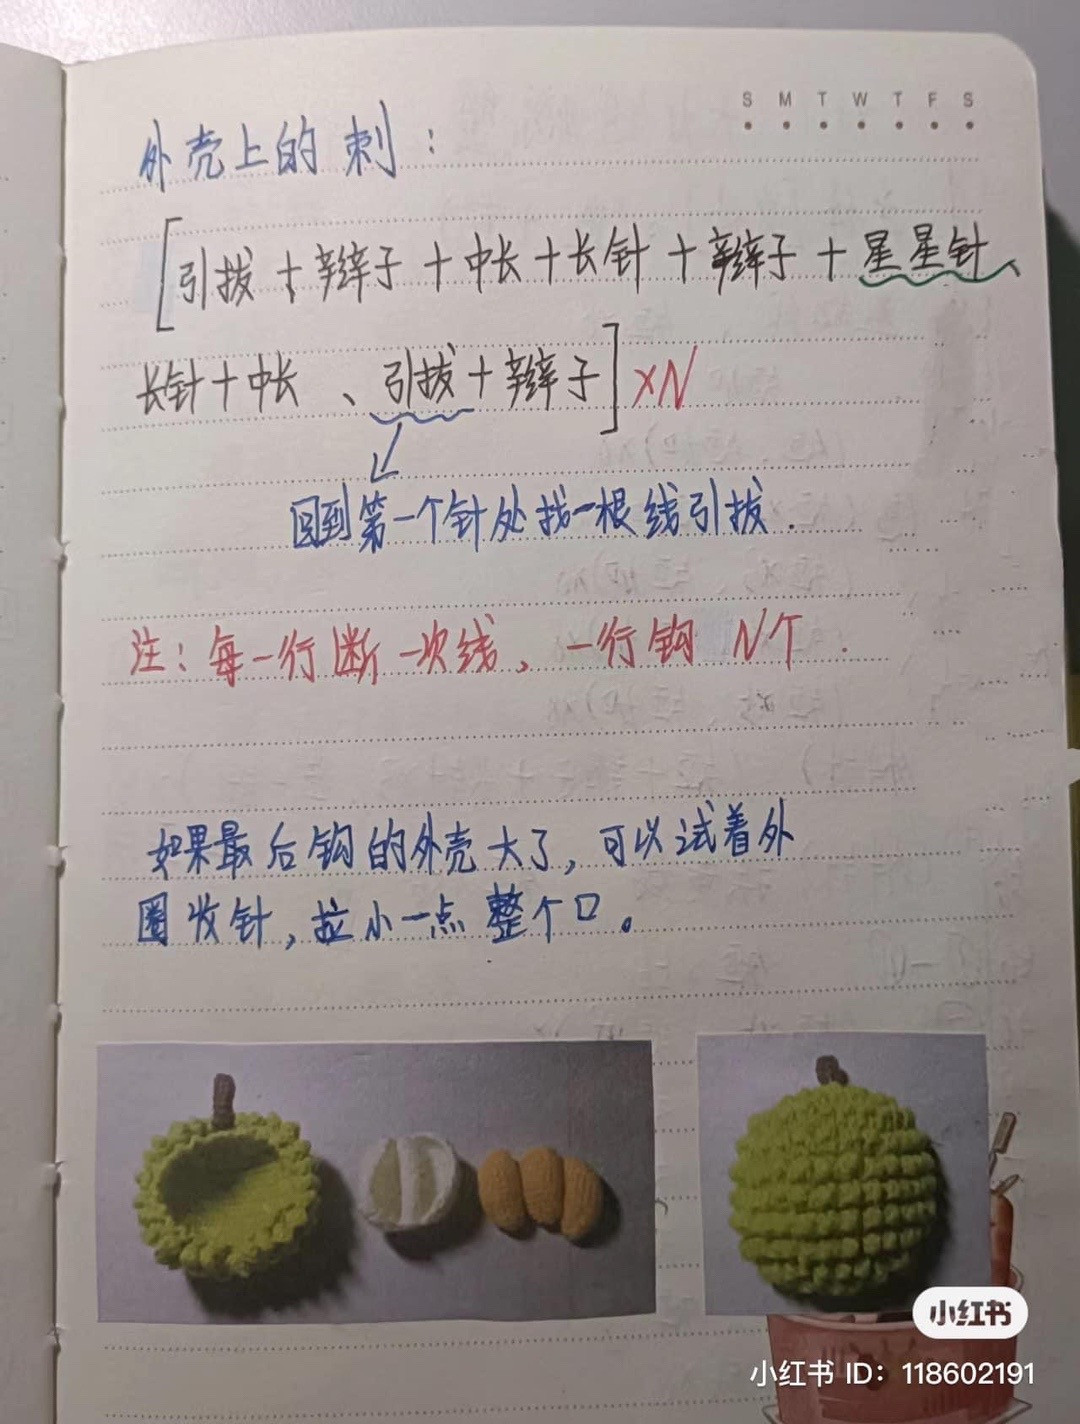 S M T W T F S
外壳上的刺:
[引拔+辫子+中长+长针+辫子+星星针、
长针+中长、引拔+辫子]×N
回到第一个针处找一根线引拔.
注:每一行断一次线、一行钩N个.
如果最后钩的外壳大了,可以试着外
圈收针,拉小一点整个口。
小红书
小红书 ID: 118602191